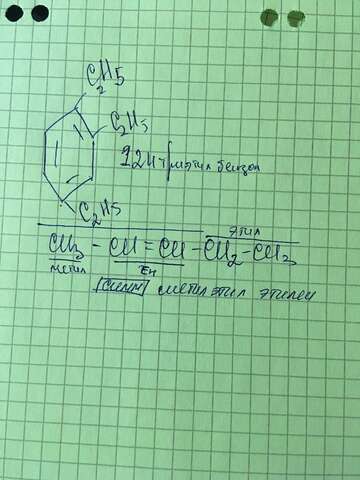 C2H5
C2H5
124 триэтил бензол
C2H5
этил
CH3 - CH = CH - CH2 - CH3
метил ен
[симм] метил этил этилен